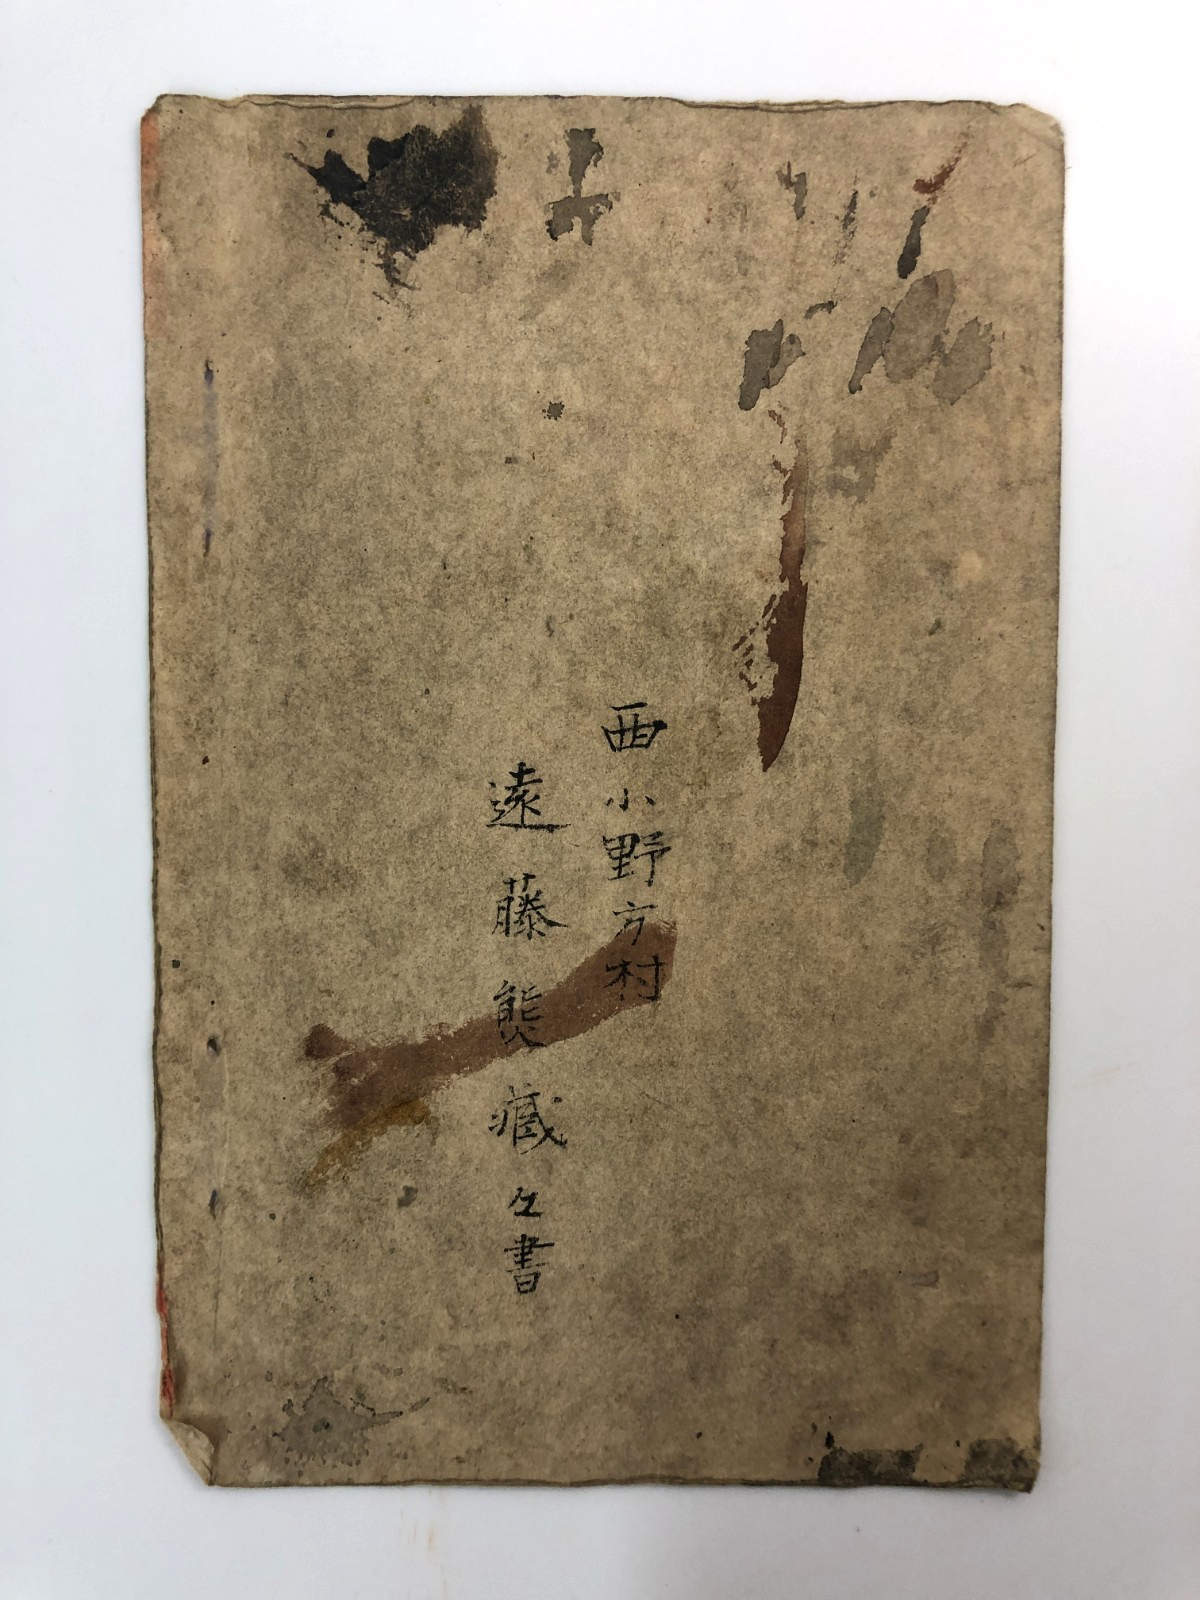 西小野方村
遠藤熊藏之書